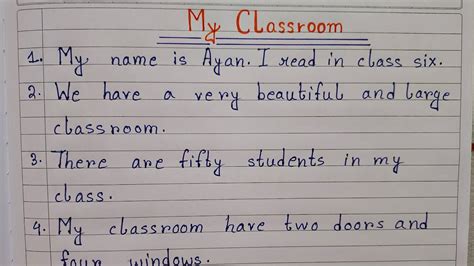 My Classroom
1. My name is Ayan. I read in class six.
2. We have a very beautiful and large
classroom.
3. There are fifty students in my
class.
4. My classroom have two doors and
four windows.